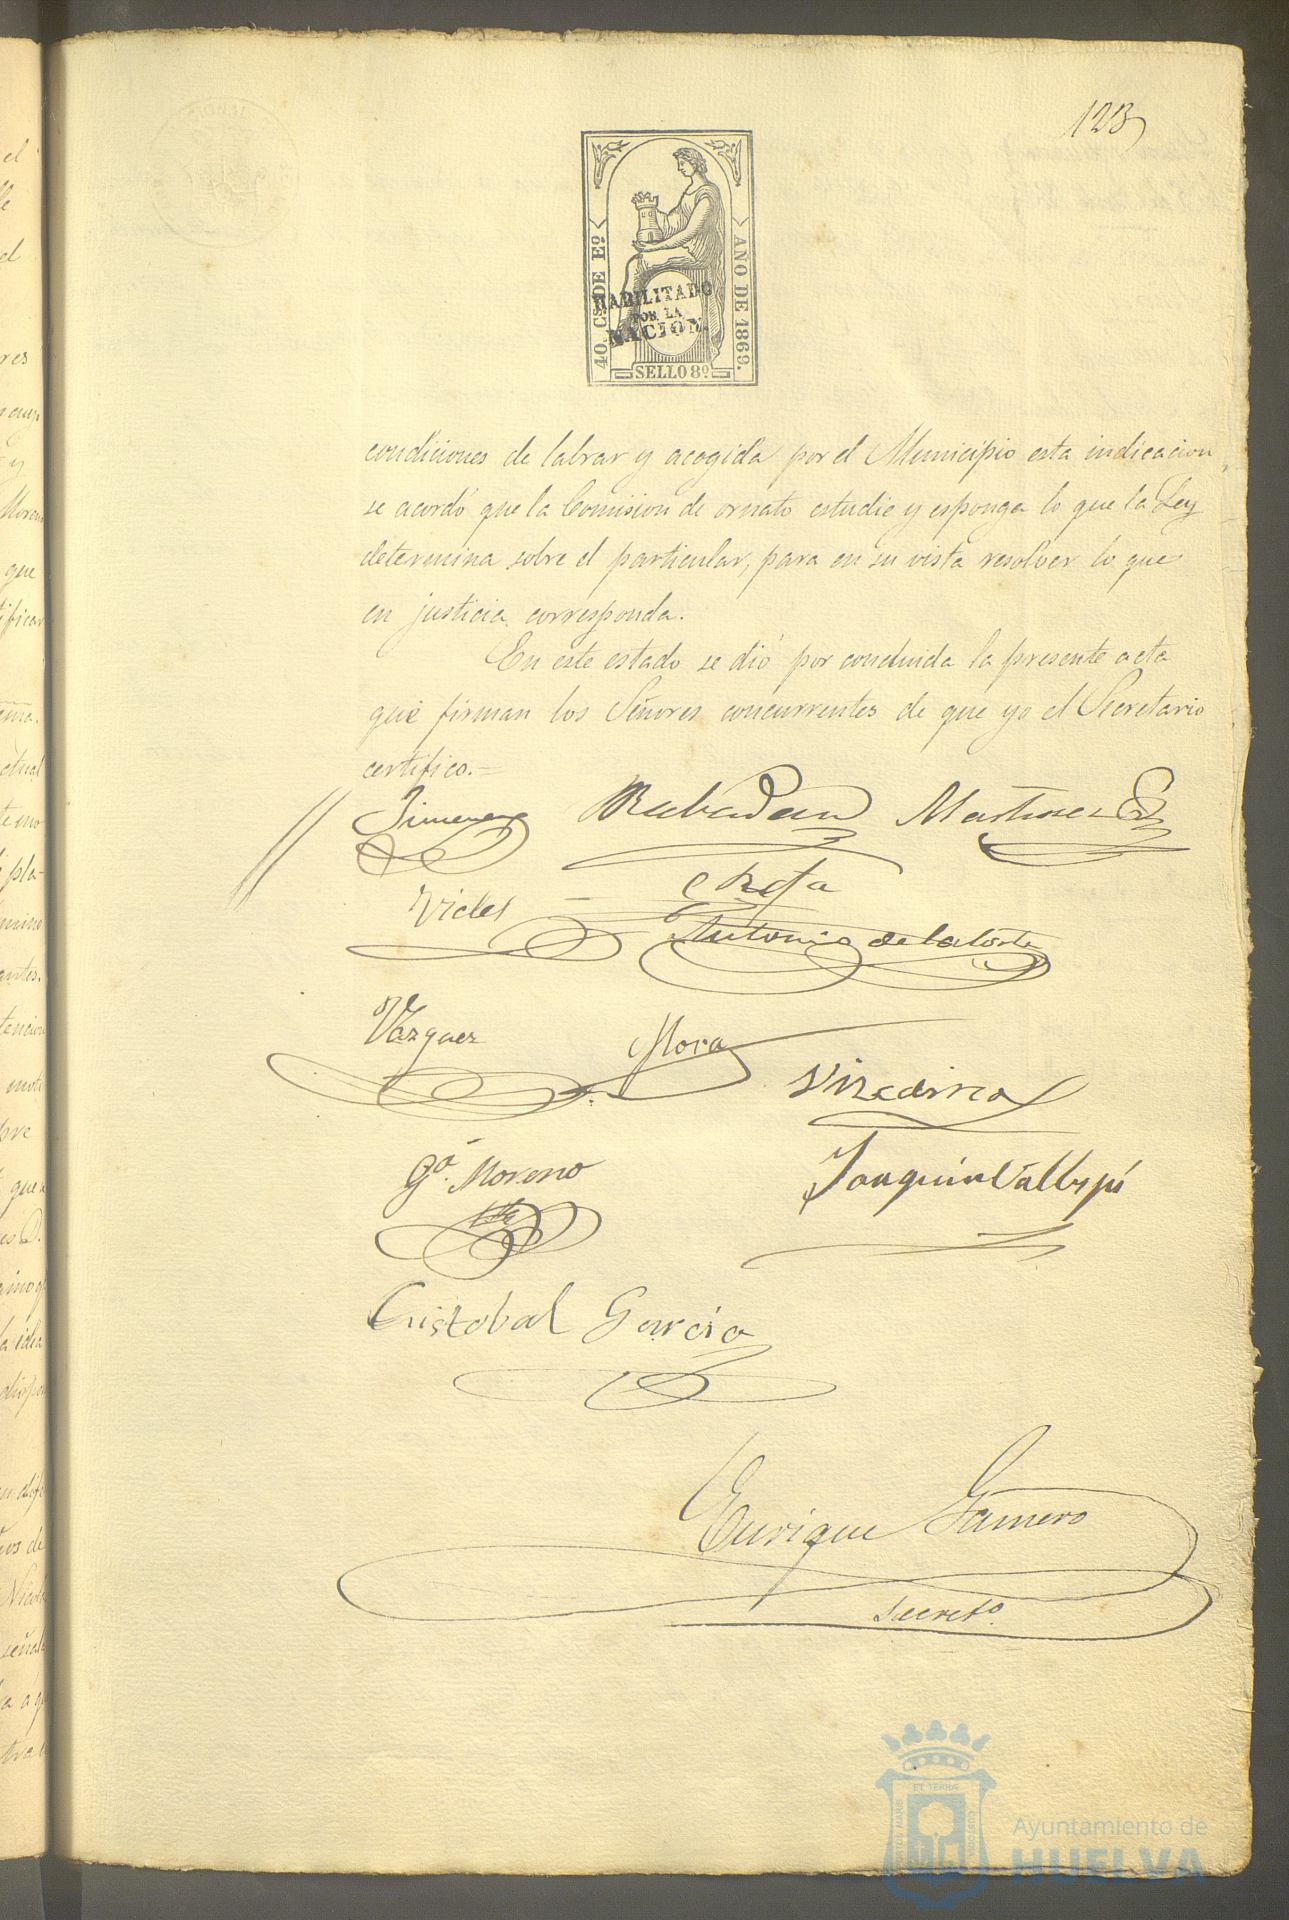 123
40. Cs. DE Eº
AÑO DE 1869.
HABILITADO
POR LA
NACION.
SELLO 8º
condiciones de labrar y acogida por el Municipio esta indicacion,
se acordó que la Comision de ornato estudie y esponga lo que la Ley
determina sobre el particular, para en su vista resolver lo que
en justicia corresponda.
En este estado se dió por concluida la presente acta
que firman los Señores concurrentes de que yo el Secretario
certifico.=
Jimenez Rabadan Martinez
Vides
Antonio de la Corte
Vazquez Mora
Gª. Moreno Joaquin Vallejo
Cristobal García
Enrique Gamero
Secretº.
Ayuntamiento de
HUELVA